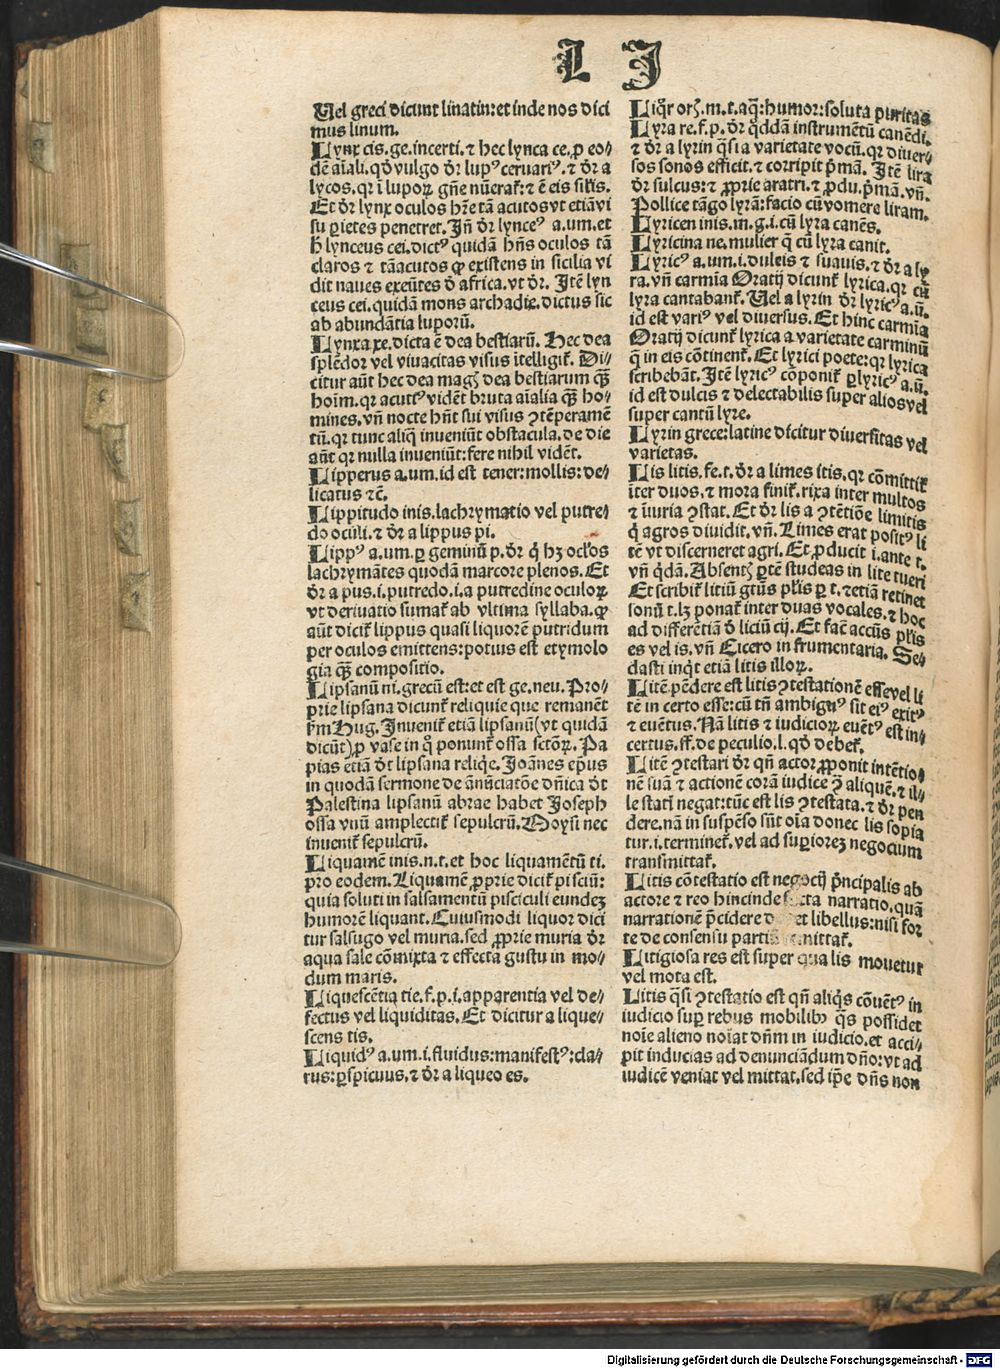 L J
Uel greci dicunt linatin: et inde nos dici
mus linum.
Lynx cis. ge. incerti. ⁊ hec lynca ce. ꝓ eo⸗
dē aīali. qḋ vulgo ḋr lupꝰ ceruariꝰ. ⁊ ḋr a
lycos. qꝛ ī lupoꝝ gn̄e nūeraſ: ⁊ ē eis siłis.
Et ḋr lynx oculos hr̄e tā acutos vt etiā vi
su ꝑietes penetret. Jn̄ ḋr lynceꝰ a. um. et
ħ lynceus cei. dictꝰ quidā hn̄s oculos tā
claros ⁊ tāacutos ꝙ existens in sicilia vi
dit naues exeūtes ḋ africa. vt ḋr. Jtē lyn
ceus cei. quidā mons archadie. dictus sic
ab abundātia luporū.
Lynxa xe. dicta ē dea bestiarū. Hec dea
splēdor vel viuacitas visus ītelligiſ. Di⸗
citur aūt hec dea magꝭ dea bestiarum qꝫ̄
hoīm. qꝛ acutꝰ vidēt bruta aīalia qꝫ̄ ho⸗
mines. vn̄ nocte hn̄t sui visus ꝯtēperamē
tū. qꝛ tunc aliq̄ inueniūt obstacula. de die
aūt qꝛ nulla inueniūt: fere nihil vidēt.
Lipperus a. um. id est tener: mollis: de⸗
licatus ⁊c̄.
Lippitudo inis. lachrymatio vel putre⸗
do oculi. ⁊ ḋr a lippus pi.
Lippꝰ a. um. ꝑ geminū p. ḋr q̇ hꝫ ocłos
lachrymātes quodā marcore plenos. Et
ḋr a pus. i. putredo. i. a putredine oculoꝝ
vt deriuatio sumaſ ab vltima syllaba. ꝙ
aūt diciſ lippus quasi liquorē putridum
per oculos emittens: potius est etymolo
gia qꝫ̄ compositio.
Lipsanū ni. grecū est: et est ge. neu. Pro⸗
prie lipsana dicunſ reliquie que remanēt
ẜm Hug. Jnueniſ etiā lipsanū (vt quidā
dicūt) ꝓ vase in q̊ ponunſ ossa sctōꝝ. Pa
pias etiā ḋt lipsana reliq̄e. Joānes ep̄us
in quodā sermone de ānūciatōe dn̄ica ḋt
Palestina lipsanū abrae habet Joseph
ossa vnū amplectiſ sepulcrū. Moysi nec
inueniſ sepulcrū.
Liquamē inis. n. t. et hoc liquamētū ti.
pro eodem. Liquamē ꝓprie diciſ pisciū:
quia soluti in salsamentū pisciculi eundeꝫ
humorē liquant. Cuiusmodi liquor dici
tur salsugo vel muria. sed ꝓprie muria ḋr
aqua sale cōmixta ⁊ effecta gustu in mo⸗
dum maris.
Liquescētia tie. f. p. i. apparentia vel de⸗
fectus vel liquiditas. Et dicitur a lique⸗
scens tis.
Liquidꝰ a. um. i. fluidus: manifestꝰ: cla⸗
rus: ꝑspicuus. ⁊ ḋr a liqueo es.
Liq̊r orꝭ. m. t. aq̄: humor: soluta puritas
Lyra re. f. p. ḋr q̇ddā instrumētū canēdi.
⁊ ḋr a lyrin q̄si a varietate vocū. qꝛ diuer⸗
sos sonos efficit. ⁊ corripit p̄mā. Jtē lira
ḋr sulcus: ⁊ ꝓprie aratri. ⁊ ꝓdu. p̄mā. vn̄.
Pollice tāgo lyrā: facio cū vomere liram.
Lyricen inis. m. g. i. cū lyra canēs.
Lyricina ne. mulier q̄ cū lyra canit.
Lyricꝰ a. um. i. dulcis ⁊ suauis. ⁊ ḋr a ly
ra. vn̄ carmīa Oratij dicunſ lyrica. qꝛ cū
lyra cantabanſ. Uel a lyrin ḋr lyricꝰ a. ū.
id est variꝰ vel diuersus. Et hinc carmīa
Oratij dicunſ lyrica a varietate carminū
q̄ in eis cōtinenſ. Et lyrici poete: qꝛ lyrica
scribebāt. Jtē lyricꝰ cōponiſ ꝑlyricꝰ a. ū.
id est dulcis ⁊ delectabilis super alios vel
super cantū lyre.
Lyrin grece: latine dicitur diuersitas vel
varietas.
Lis litis. fe. t. ḋr a limes itis. qꝛ cōmittiſ
īter duos. ⁊ mora finiſ. rixa inter multos
⁊ iniuria ꝯstat. Et ḋr lis a ꝯtētiōe limitis
q̇ agros diuidit. vn̄. Limes erat positꝰ li
tē vt discerneret agri. Et ꝓducit i. ante t.
vn̄ q̇dā. Absentꝭ ꝑtē studeas in lite tueri
Et scribiſ litiū gtūs płis ꝑ t. ⁊ etiā retinet
sonū t. lꝫ ponaſ inter duas vocales. ⁊ hoc
ad differētiā ḋ liciū cij. Et facit accūs płis
es vel is. vn̄ Cicero in frumentaria. Se⸗
dasti inq̇t etiā litis illoꝝ.
Litē pēdere est litis ꝯtestationē esse vel li
tē in certo esse: cū tn̄ ambiguꝰ sit eiꝰ exitꝰ
⁊ euētus. Nā litis ⁊ iudicioꝝ euētꝰ est in⸗
certus. ff. de peculio. l. qḋ debeſ.
Litē ꝯtestari ḋr qn̄ actor ꝓponit intētio⸗
nē suā ⁊ actionē corā iudice ꝯ̄ aliquē. ⁊ il⸗
le statī negat: tūc est lis ꝯtestata. ⁊ ḋr pen
dere. nā in suspēso sūt oīa donec lis sopia
tur. i. termineſ. vel ad superioreꝫ negocium
transmittaſ.
Litis cōtestatio est negocij p̄ncipalis ab
actore ⁊ reo hincinde facta narratio. quā
narrationē p̄cidere debet libellus: nisi for
te de consensu partiū omittaſ.
Litigiosa res est super qua lis mouetur
vel mota est.
Litis q̄si ꝯtestatio est qn̄ aliq̇s cōuētꝰ in
iudicio suꝑ rebus mobilibꝰ q̄s possidet
noīe alieno noīat dn̄m in iudicio. et acci⸗
pit inducias ad denunciādum dn̄o: vt ad
iudicē veniat vel mittat. sed ip̄e dn̄s non
Digitalisierung gefördert durch die Deutsche Forschungsgemeinschaft - DFG